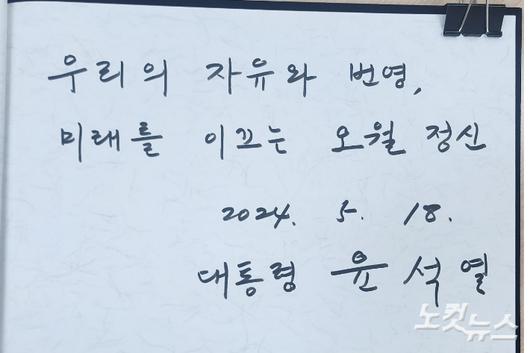 우리의 자유와 번영,
미래를 이끄는 오월 정신
2024. 5. 18.
대통령 윤석열
노컷뉴스